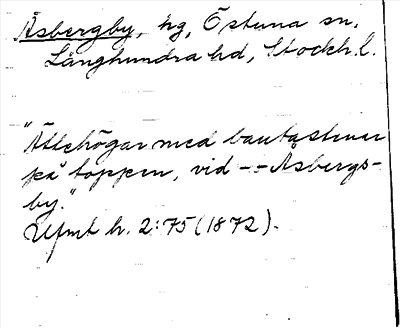 Åsbergby, hg, Östuna sn,
Långhundra hd, Stockh. l.
"Ättehögar med bautastenar
på toppen, vid -- Åsbergs-
by."
Ufmt h. 2:75 (1872).